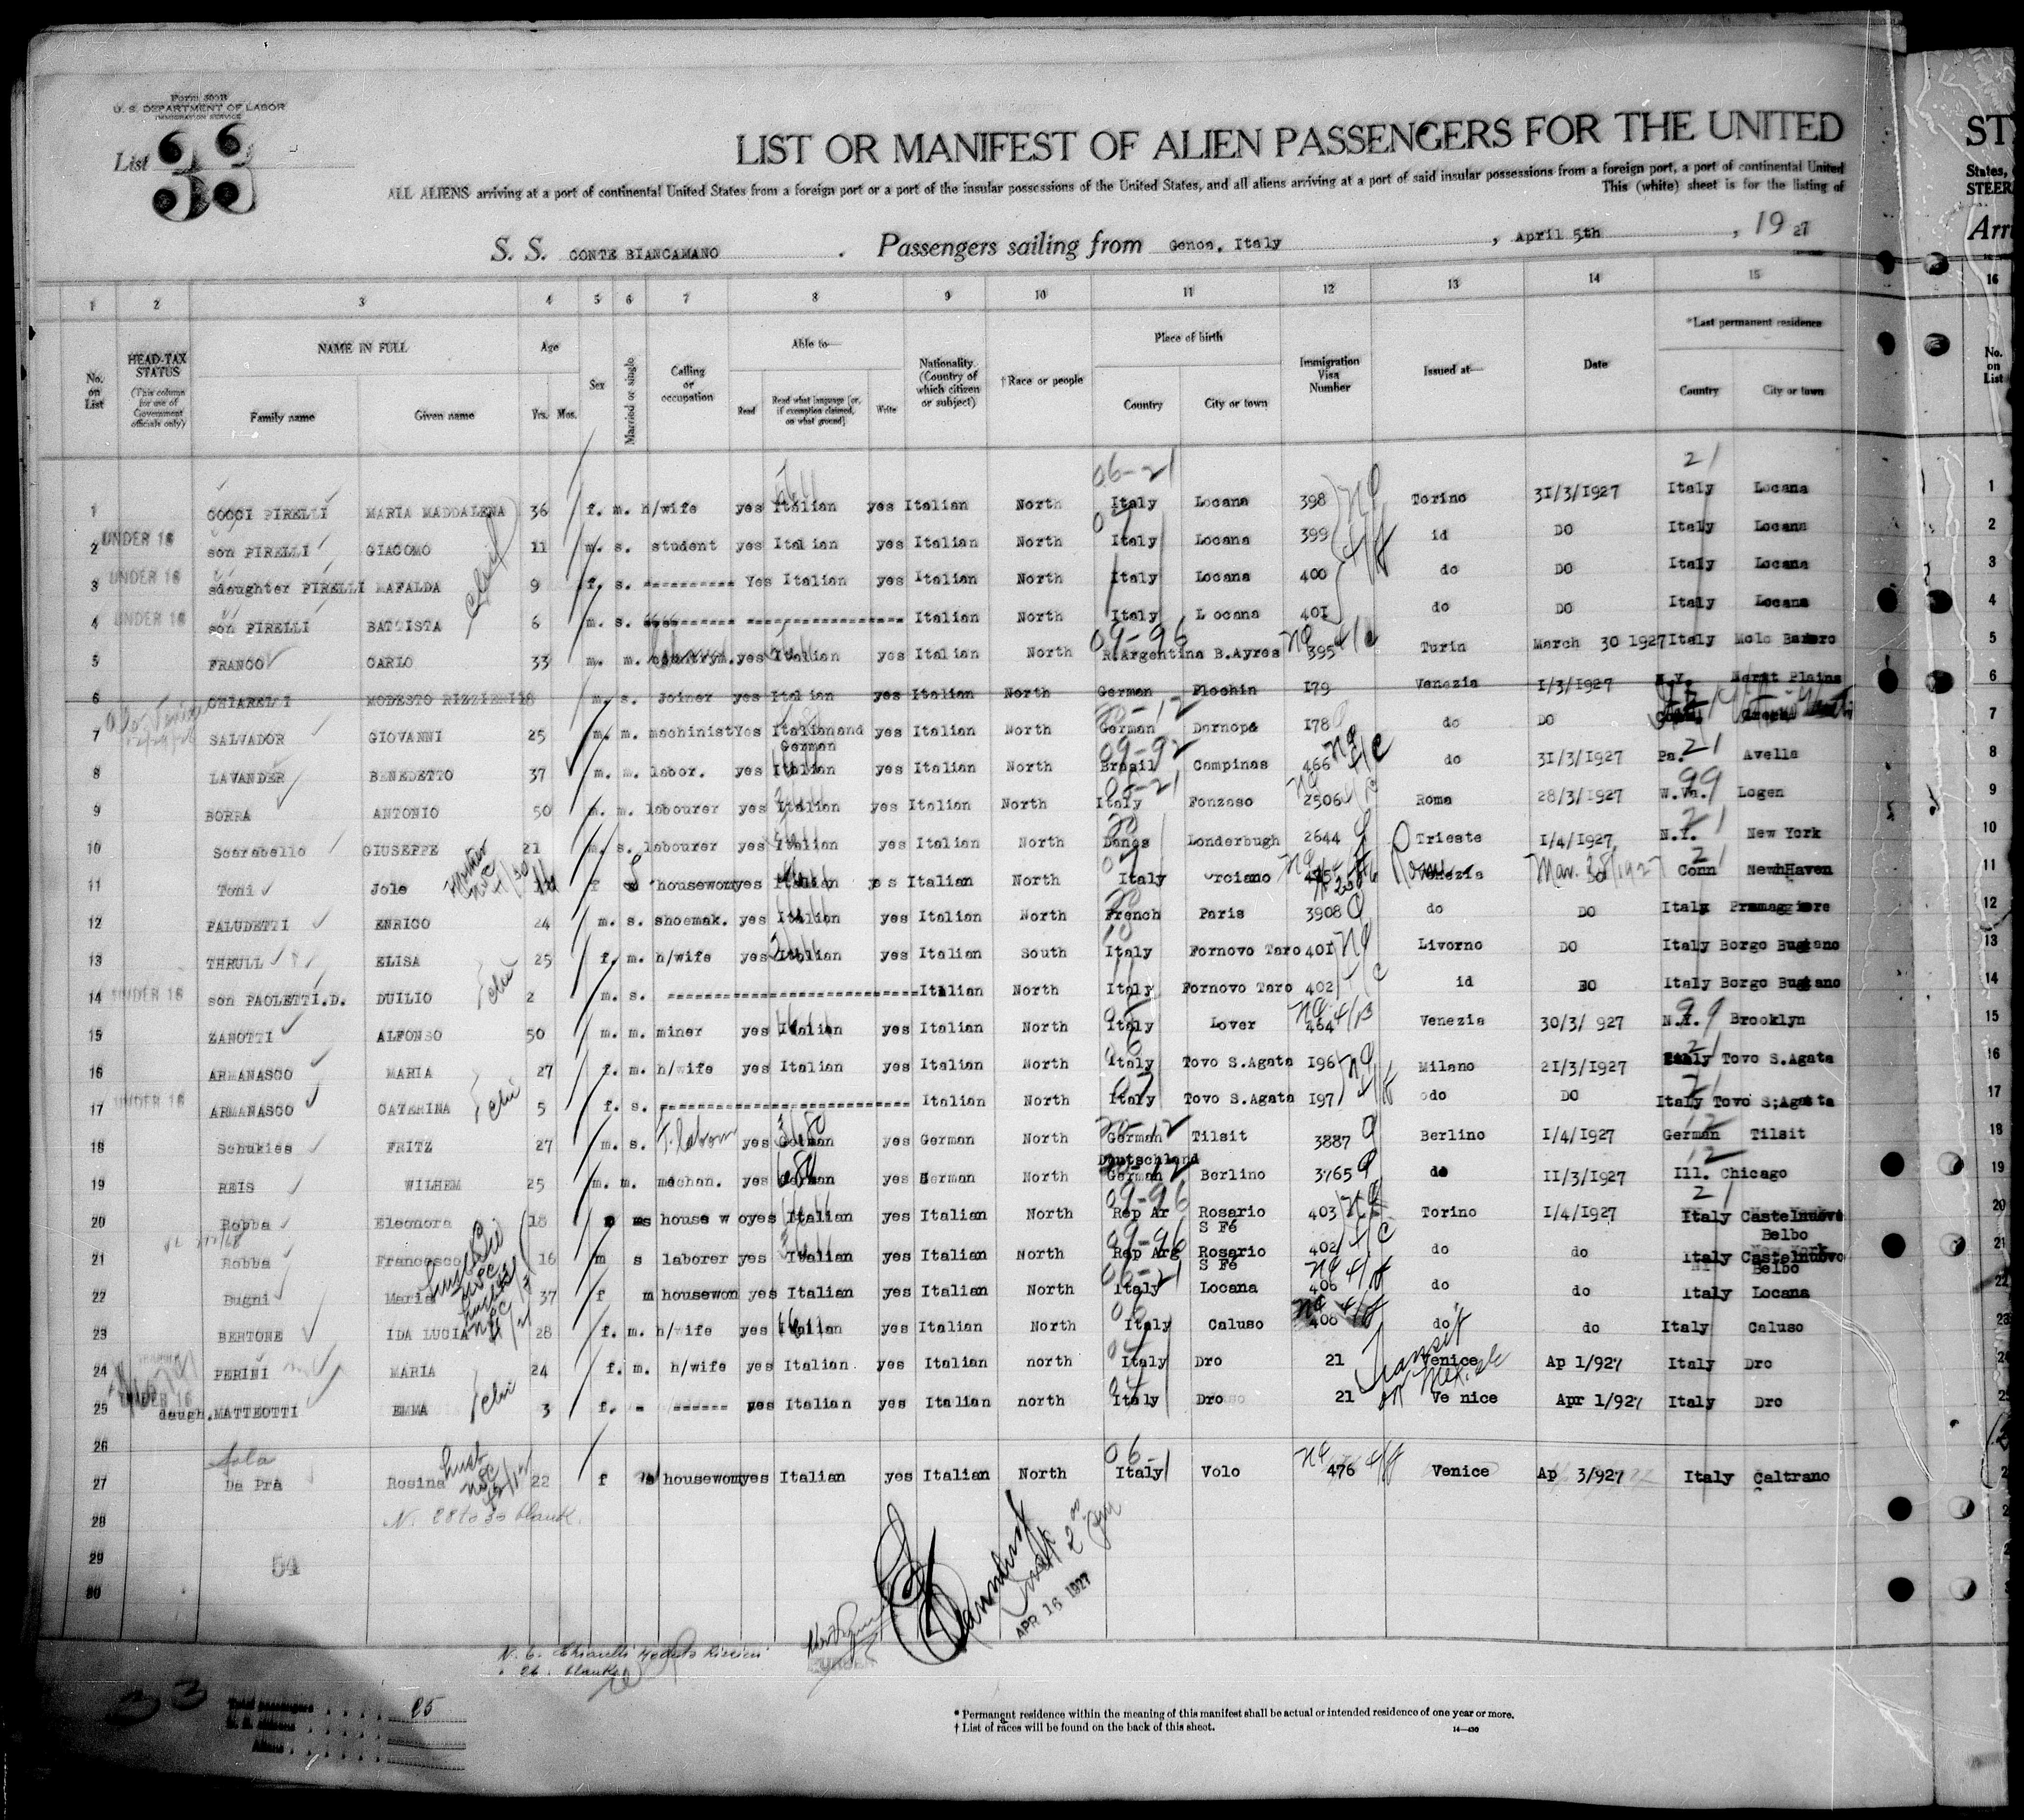 Form 500B
U. S. DEPARTMENT OF LABOR
IMMIGRATION SERVICE
List 33
LIST OR MANIFEST OF ALIEN PASSENGERS FOR THE UNITED
ST
ALL ALIENS arriving at a port of continental United States from a foreign port or a port of the insular possessions of the United States, and all aliens arriving at a port of said insular possessions from a foreign port, a port of continental United
States,
This (white) sheet is for the listing of
STEER
S. S. CONTE BIANCAMANO . Passengers sailing from Genoa, Italy , April 5th , 19 27
Arri
1 2 3 4 5 6 7 8 9 10 11 12 13 14 15 16
No. on List
HEAD-TAX STATUS
(This column for use of Government officials only)
NAME IN FULL
Family name Given name
Age
Yrs. Mos.
Sex
Married or single
Calling or occupation
Able to—
Read Read what language [or, if exemption claimed, on what ground] Write
Nationality. (Country of which citizen or subject)
†Race or people
Place of birth
Country City or town
Immigration Visa Number
Issued at—
Date
*Last permanent residence
Country City or town
No. on List
06-21 21
1 COCCI PIRELLI MARIA MADDALENA 36 f. m. h/wife yes Italian yes Italian North Italy Locana 398 Torino 31/3/1927 Italy Locana 1
UNDER 16
2 son PIRELLI GIACOMO 11 m. s. student yes Italian yes Italian North Italy Locana 399 id DO Italy Locana 2
UNDER 16
3 sdaughter PIRELLI MAFALDA 9 f. s. ---------- Yes Italian yes Italian North Italy Locana 400 do DO Italy Locana 3
UNDER 16
4 son PIRELLI BATTISTA 6 m. s. ---------- ---------------- Italian North Italy Locana 401 do DO Italy Locana 4
09-96
5 FRANCO CARLO 33 m. m. countrym. yes Italian yes Italian North R.Argentina B.Ayres 395 Turin March 30 1927 Italy Molo 5
6 CHIARELLI MODESTO RIZZIERI 18 m. s. Joiner yes Italian yes Italian North German Plochin 179 Venezia 1/3/1927 N.Y. Plains 6
7 SALVADOR GIOVANNI 25 m. m. machinist Yes Italian and German yes Italian North German Dornope 178 do DO 7
09-92
8 LAVANDER BENEDETTO 37 m. m. labor. yes Italian yes Italian North Brasil Campinas 466 do 31/3/1927 Pa. 21 Avella 8
9 BORRA ANTONIO 50 m. m. labourer yes Italian yes Italian North Italy Fonzaso 2506 Roma 28/3/1927 W.Va. 99 Logen 9
10 Scarabello GIUSEPPE 21 m. s. labourer yes Italian yes Italian North Danes Londerbugh 2644 Trieste 1/4/1927 N.Y. New York 10
11 Toni Jole f housewom yes Italian yes Italian North Italy Orciano Venezia Mar. 30/1927 Conn NewhHaven 11
12 PALUDETTI ENRICO 24 m. s. shoemak. yes Italian yes Italian North French Paris 3908 do DO Italy Pramaggiore 12
13 THRULL ELISA 25 f. m. h/wife yes Italian yes Italian South Italy Fornovo Taro 401 Livorno DO Italy Borgo Bugiano 13
UNDER 16
14 son PAOLETTI.D. DUILIO 2 m. s. ------------------------ Italian North Italy Fornovo Taro 402 id DO Italy Borgo Bugiano 14
15 ZANOTTI ALFONSO 50 m. m. miner yes Italian yes Italian North Italy Lover 464 Venezia 30/3/ 927 N.Y. Brooklyn 15
16 ARMANASCO MARIA 27 f. m. h/wife yes Italian yes Italian North Italy Tovo S.Agata 196 Milano 21/3/1927 Italy Tovo S.Agata 16
UNDER 16
17 ARMANASCO CATERINA 5 f. s. ------------------------ Italian North Italy Tovo S.Agata 197 do DO Italy Tovo S;Agata 17
18 Schukies FRITZ 27 m. s. F. labour yes German yes German North German Tilsit 3887 Berlino 1/4/1927 German Tilsit 18
Deutschland
19 REIS WILHEM 25 m. m. mechan. yes German yes German North German Berlino 3765 do 11/3/1927 Ill. Chicago 19
09-96 21
20 Robba Eleonora 18 ms house wo yes Italian yes Italian North Rep Ar Rosario S Fé 403 Torino 1/4/1927 Italy Castelnuovo Belbo 20
09-96
21 Robba Francesco 16 m s laborer yes Italian yes Italian North Rep Arg Rosario S Fé 402 do do Italy Castelnuovo Belbo 21
06-21
22 Bugni Maria 37 f m housewom yes Italian yes Italian North Italy Locana 406 do do Italy Locana 22
23 BERTONE IDA LUCIA 28 f. m. h/wife yes Italian yes Italian North Italy Caluso 408 do do Italy Caluso 23
24 PERINI MARIA 24 f. m. h/wife yes Italian yes Italian north Italy Dro 21 Venice Ap 1/927 Italy Dro 24
Transit
UNDER 16
25 daugh. MATTEOTTI EMMA 3 f. - ------ yes Italian yes Italian north Italy Dro 21 Ve nice Apr 1/927 Italy Dro 25
26
Sola
27 Da Pra Rosina 22 f housewom yes Italian yes Italian North Italy Volo 476 Venice Ap 3/927 Italy Caltrano
28 N. 28 to 30 blank.
29 54
30
APR 16 1927
N. 6. Chiarelli Modesto Rizzieri
" 26. blank
33
Total passengers 25
U. S. citizens
Aliens
* Permanent residence within the meaning of this manifest shall be actual or intended residence of one year or more.
† List of races will be found on the back of this sheet.
14—430